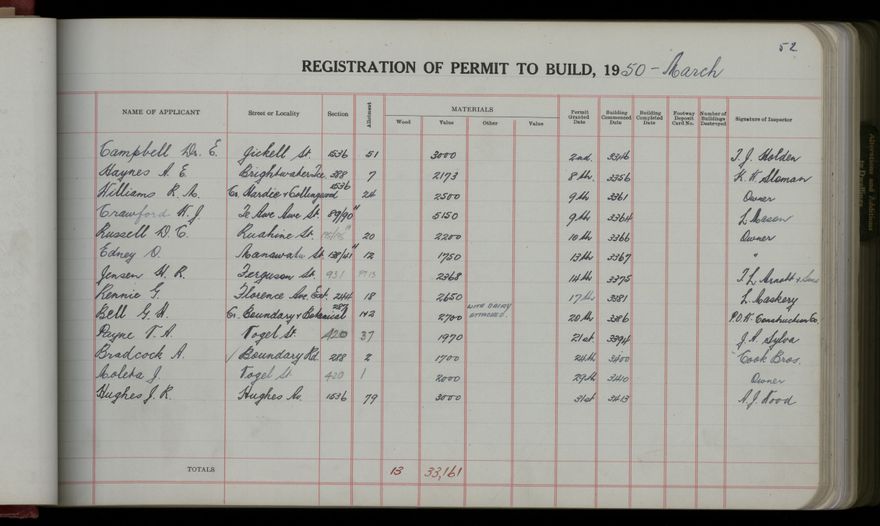 52
REGISTRATION OF PERMIT TO BUILD, 1950 - March
NAME OF APPLICANT Street or Locality Section Allotment MATERIALS Permit Granted Date Building Commenced Date Building Completed Date Footway Deposit Card No. Number of Buildings Destroyed Signature of Inspector
Wood Value Other Value
Campbell Dr. E. Jickell St 1536 51 3000 2nd. 3346 T. J. Holden
Haynes A. E Brightwater Tce 388 7 2173 8th. 3356 K. W. Sloman
Williams R. A. Cr. Hardie & Collingwood 1536 24 2500 9th 3361 Owner
Crawford W. J. Te Awe Awe St. 89/90" 5150 9th 3364 L Mason
Russell D. C. Ruahine St. 20 2200 10th 3366 Owner
Edney O. Manawatu St. 138/41" 12 1750 13th 3367 "
Jensen H. R. Ferguson St. 931 2368 14th 3375 T. L. Arnott & Sons
Rennie G. Florence Ave. Ext. 244 18 2650 17th 3381 L. Maskery
Bell G. H. Cr. Boundary & Botanical 142 2700 WITH DAIRY ATTACHED. 20th 3386 P.O.W. Construction Co.
Payne T. A. Vogel St. 420 37 1970 21st 3394 J. A. Sylva
Bradcock A. ✓ Boundary Rd. 288 2 1700 24th 3400 Cook Bros.
J. Vogel St 420 1 2000 29th 3410 Owner
Hughes J. R. Hughes Av. 1536 79 3000 31st 3413 A. J. Wood
TOTALS 13 33,161
Alterations and Additions to Dwellings